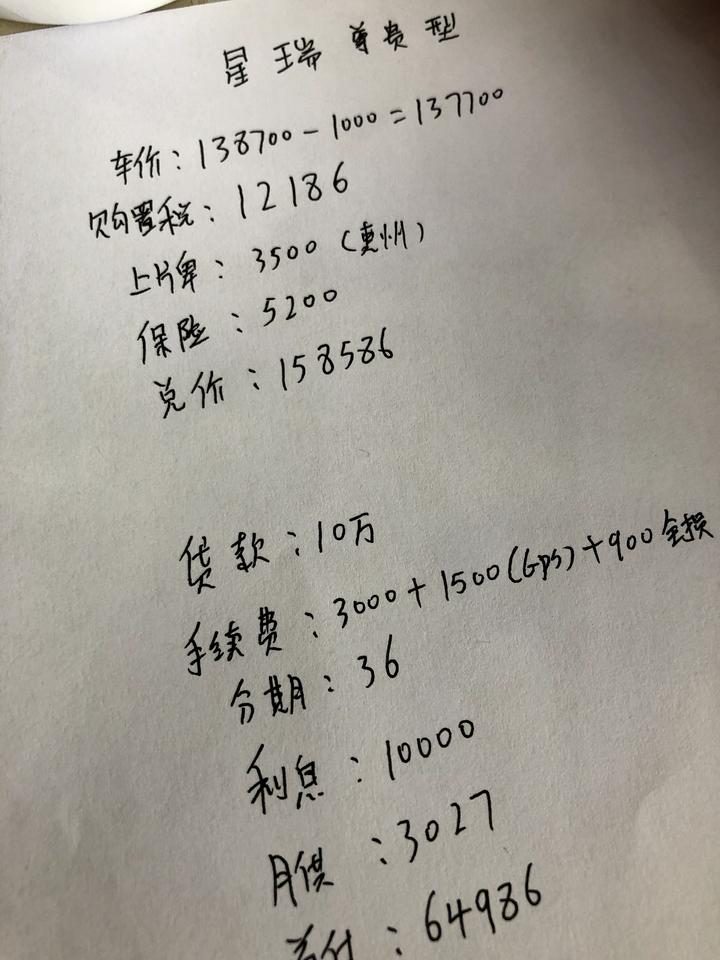 星瑞尊贵型
车价：138700-1000=137700
购置税：12186
上片牌：3500（惠州）
保险：5200
总价：158586
贷款：10万
手续费：3000+1500(Gps)+900全损
分期：36
利息：10000
月供：3027
首付：64986